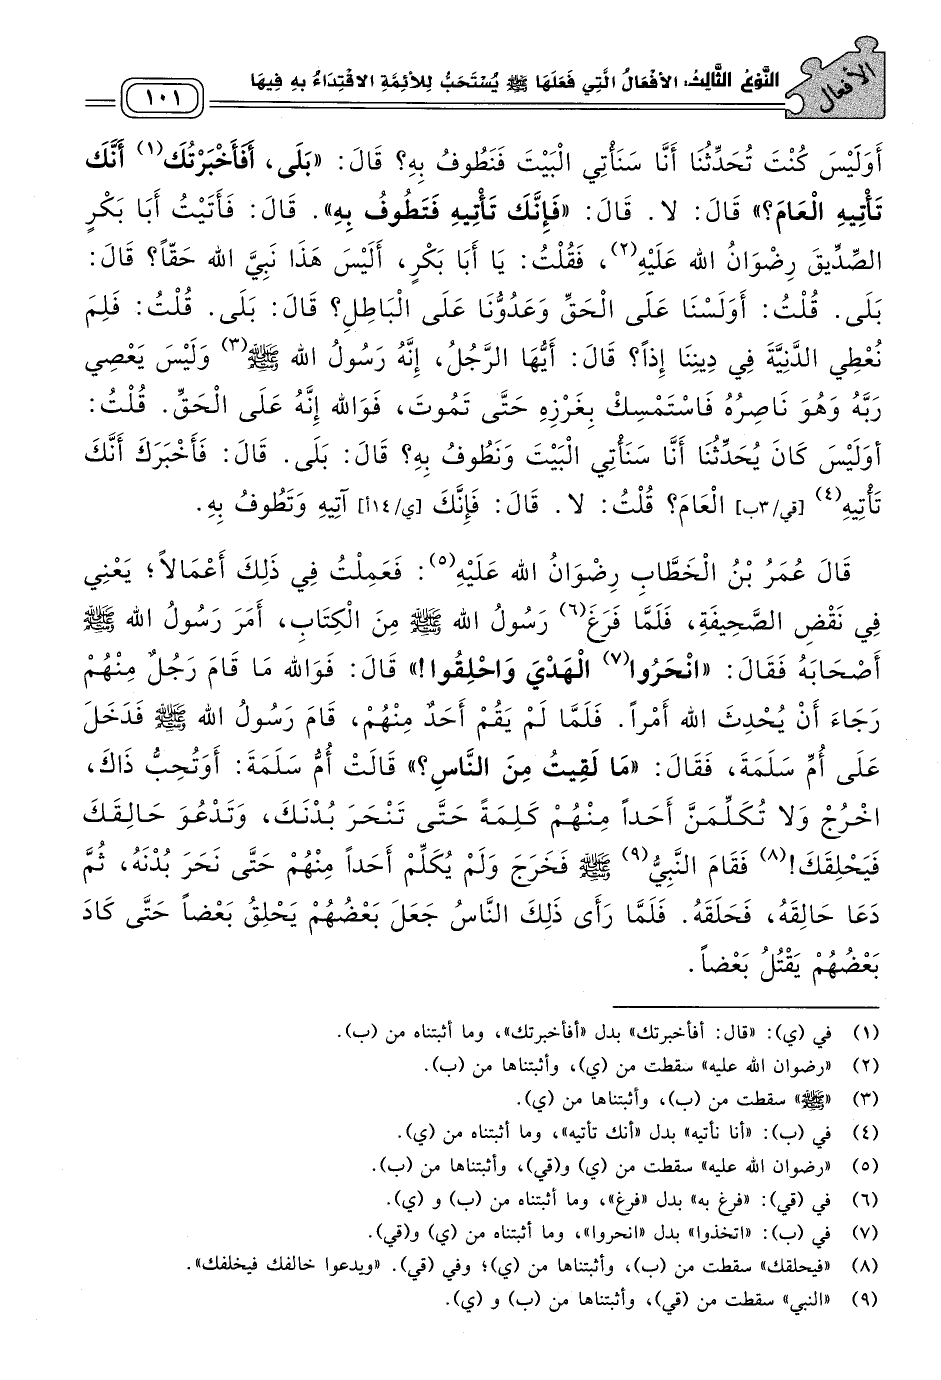 الأفعال
النَّوْعُ الثَّالِثُ: الأَفْعَالُ الَّتِي فَعَلَهَا ﷺ يُسْتَحَبُّ لِلأَئِمَّةِ الاقْتِدَاءُ بِهِ فِيهَا
١٠١
أَوَلَيْسَ كُنْتَ تُحَدِّثُنَا أَنَّا سَنَأْتِي الْبَيْتَ فَنَطُوفُ بِهِ؟ قَالَ: «بَلَى، أَفَأَخْبَرْتُكَ(١) أَنَّكَ
تَأْتِيهِ الْعَامَ؟» قَالَ: لا. قَالَ: «فَإِنَّكَ تَأْتِيهِ فَتَطُوفُ بِهِ». قَالَ: فَأَتَيْتُ أَبَا بَكْرٍ
الصِّدِّيقَ رِضْوَانُ الله عَلَيْهِ(٢)، فَقُلْتُ: يَا أَبَا بَكْرٍ، أَلَيْسَ هَذَا نَبِيَّ الله حَقّاً؟ قَالَ:
بَلَى. قُلْتُ: أَوَلَسْنَا عَلَى الْحَقِّ وَعَدُوُّنَا عَلَى الْبَاطِلِ؟ قَالَ: بَلَى. قُلْتُ: فَلِمَ
نُعْطِي الدَّنِيَّةَ فِي دِينِنَا إِذاً؟ قَالَ: أَيُّهَا الرَّجُلُ، إِنَّهُ رَسُولُ الله ﷺ(٣) وَلَيْسَ يَعْصِي
رَبَّهُ وَهُوَ نَاصِرُهُ فَاسْتَمْسِكْ بِغَرْزِهِ حَتَّى تَمُوتَ، فَوَالله إِنَّهُ عَلَى الْحَقِّ. قُلْتُ:
أَوَلَيْسَ كَانَ يُحَدِّثُنَا أَنَّا سَنَأْتِي الْبَيْتَ وَنَطُوفُ بِهِ؟ قَالَ: بَلَى. قَالَ: فَأَخْبَرَكَ أَنَّكَ
تَأْتِيهِ(٤) [في/٣ب] الْعَامَ؟ قُلْتُ: لا. قَالَ: فَإِنَّكَ [ي/١٤أ] آتِيهِ وَتَطُوفُ بِهِ.
قَالَ عُمَرُ بْنُ الْخَطَّابِ رِضْوَانُ الله عَلَيْهِ(٥): فَعَمِلْتُ فِي ذَلِكَ أَعْمَالاً؛ يَعْنِي
فِي نَقْضِ الصَّحِيفَةِ، فَلَمَّا فَرَغَ(٦) رَسُولُ الله ﷺ مِنَ الْكِتَابِ، أَمَرَ رَسُولُ الله ﷺ
أَصْحَابَهُ فَقَالَ: «انْحَرُوا(٧) الْهَدْيَ وَاحْلِقُوا!» قَالَ: فَوَالله مَا قَامَ رَجُلٌ مِنْهُمْ
رَجَاءَ أَنْ يُحْدِثَ الله أَمْراً. فَلَمَّا لَمْ يَقُمْ أَحَدٌ مِنْهُمْ، قَامَ رَسُولُ الله ﷺ فَدَخَلَ
عَلَى أُمِّ سَلَمَةَ، فَقَالَ: «مَا لَقِيتُ مِنَ النَّاسِ؟» قَالَتْ أُمُّ سَلَمَةَ: أَوَتُحِبُّ ذَاكَ،
اخْرُجْ وَلا تُكَلِّمَنَّ أَحَداً مِنْهُمْ كَلِمَةً حَتَّى تَنْحَرَ بُدْنَكَ، وَتَدْعُوَ حَالِقَكَ
فَيَحْلِقَكَ!(٨) فَقَامَ النَّبِيُّ(٩) ﷺ فَخَرَجَ وَلَمْ يُكَلِّمْ أَحَداً مِنْهُمْ حَتَّى نَحَرَ بُدْنَهُ، ثُمَّ
دَعَا حَالِقَهُ، فَحَلَقَهُ. فَلَمَّا رَأَى ذَلِكَ النَّاسُ جَعَلَ بَعْضُهُمْ يَحْلِقُ بَعْضاً حَتَّى كَادَ
بَعْضُهُمْ يَقْتُلُ بَعْضاً.
(١) في (ي): «قال: أفأخبرتك» بدل «أفأخبرتك»، وما أثبتناه من (ب).
(٢) «رضوان الله عليه» سقطت من (ي)، وأثبتناها من (ب).
(٣) «ﷺ» سقطت من (ب)، وأثبتناها من (ي).
(٤) في (ب): «أنا نأتيه» بدل «أنك تأتيه»، وما أثبتناه من (ي).
(٥) «رضوان الله عليه» سقطت من (ي) و(قي)، وأثبتناها من (ب).
(٦) في (قي): «فرغ به» بدل «فرغ»، وما أثبتناه من (ب) و (ي).
(٧) في (ب): «اتخذوا» بدل «انحروا»، وما أثبتناه من (ي) و(قي).
(٨) «فيحلقك» سقطت من (ب)، وأثبتناها من (ي)؛ وفي (قي). «ويدعوا خالفك فيخلفك».
(٩) «النبي» سقطت من (قي)، وأثبتناها من (ب) و (ي).